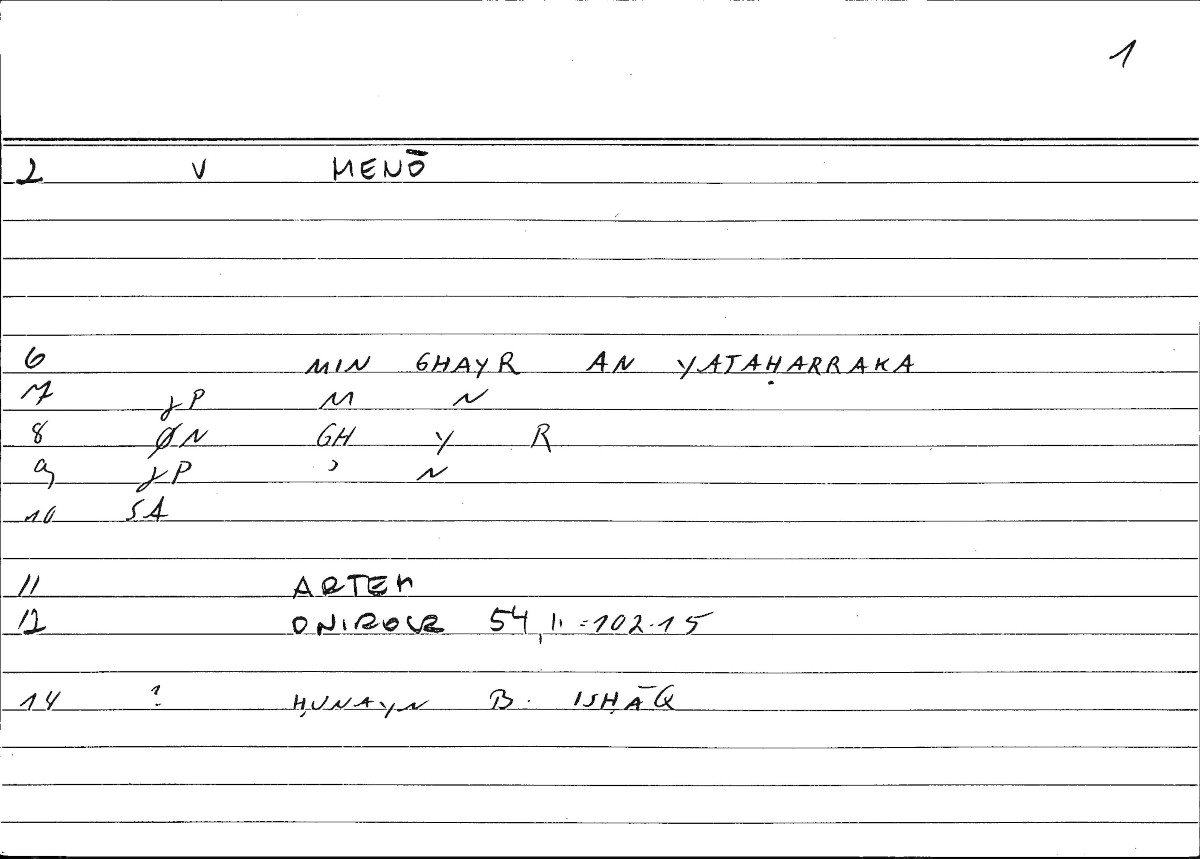 1
2 V MENŌ
6 MIN GHAYR AN YATAḤARRAKA
7 γP M N
8 ØN GH Y R
9 γP ʾ N
10 SA
11 ARTEM
12 ONIROCR 54,11=102.15
14 ? ḤUNAYN B. ISḤĀQ